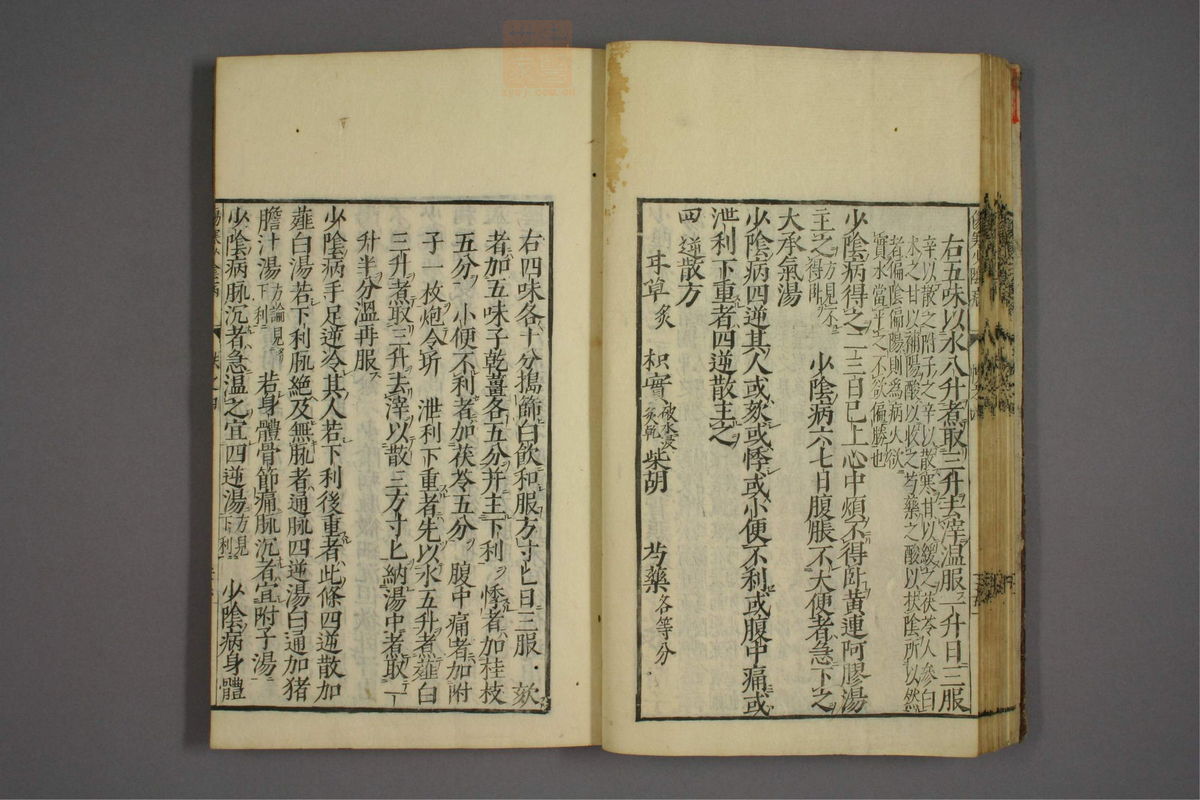 右五味以水八升煮取三升去滓温服一升日三服
辛以散之附子之辛以散寒甘以緩之茯苓人參白
朮之甘以補陽酸以收之芍藥之酸以扶陰所以然
者偏陰偏陽則為病火欲
實水當平之不欲偏勝也
少陰病得之二三日已上心中煩不得卧黃連阿膠湯
主之方見不得卧 少陰病六七日腹脹不大便者急下之
大承氣湯
少陰病四逆其人或欬或悸或小便不利或腹中痛或
泄利下重者四逆散主之
四逆散方
甘草炙 枳實破水浸炙乾 柴胡 芍藥各等分
右四味各十分搗篩白飲和服方寸匕日三服 欬
者加五味子乾薑各五分并主下利 悸者加桂枝
五分 小便不利者加茯苓五分 腹中痛者加附
子一枚炮令坼 泄利下重者先以水五升煮薤白
三升煮取三升去滓以散三方寸匕納湯中煮取一
升半分溫再服
少陰病手足逆冷其人若下利後重者此條四逆散加
薤白湯若下利脉絕及無脉者通脉四逆湯白通加猪
膽汁湯方論見下利 若身體骨節痛脉沉者宜附子湯
少陰病脉沉者急温之宜四逆湯方見下利 少陰病身體